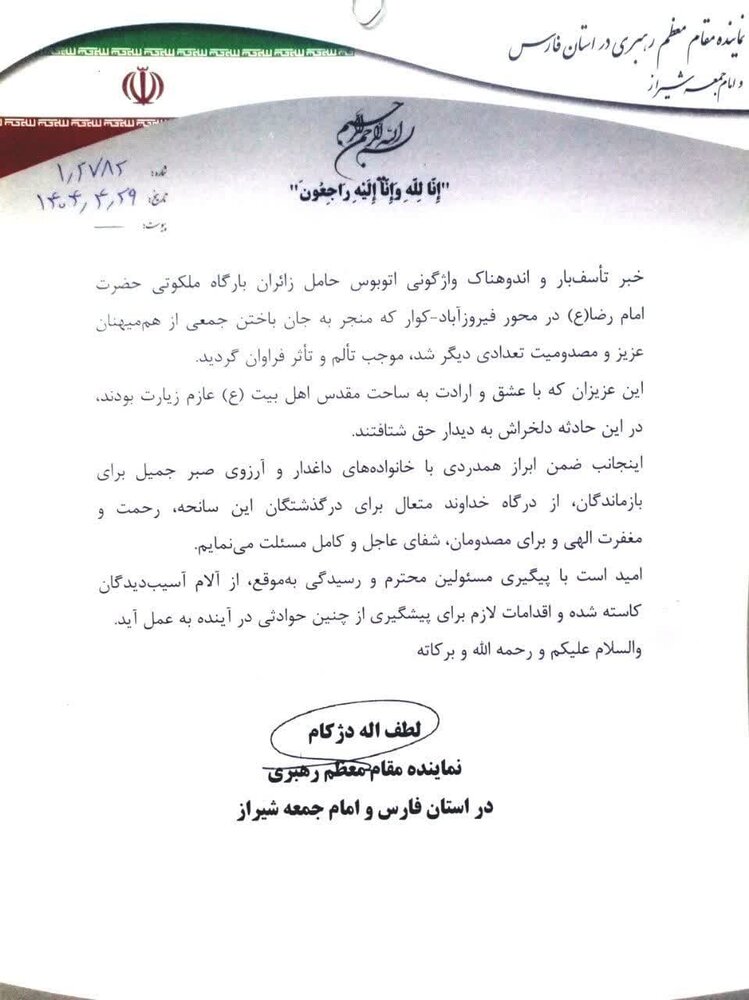 نماینده مقام معظم رهبری در استان فارس
و امام جمعه شیراز
بسم الله الرحمن الرحیم
شماره: ۱٫۲۷۸۲
تاریخ: ۱۴۰۴٫۴٫۲۹
پیوست: ــــ
"إِنَّا لِلَّهِ وَإِنَّا إِلَيْهِ رَاجِعُونَ"
خبر تأسف‌بار و اندوهناک واژگونی اتوبوس حامل زائران بارگاه ملکوتی حضرت
امام رضا(ع) در محور فیروزآباد-کوار که منجر به جان باختن جمعی از هم‌میهنان
عزیز و مصدومیت تعدادی دیگر شد، موجب تألم و تأثر فراوان گردید.
این عزیزان که با عشق و ارادت به ساحت مقدس اهل بیت (ع) عازم زیارت بودند،
در این حادثه دلخراش به دیدار حق شتافتند.
اینجانب ضمن ابراز همدردی با خانواده‌های داغدار و آرزوی صبر جمیل برای
بازماندگان، از درگاه خداوند متعال برای درگذشتگان این سانحه، رحمت و
مغفرت الهی و برای مصدومان، شفای عاجل و کامل مسئلت می‌نمایم.
امید است با پیگیری مسئولین محترم و رسیدگی به‌موقع، از آلام آسیب‌دیدگان
کاسته شده و اقدامات لازم برای پیشگیری از چنین حوادثی در آینده به عمل آید.
والسلام علیکم و رحمه الله و برکاته
لطف اله دژکام
نماینده مقام معظم رهبری
در استان فارس و امام جمعه شیراز